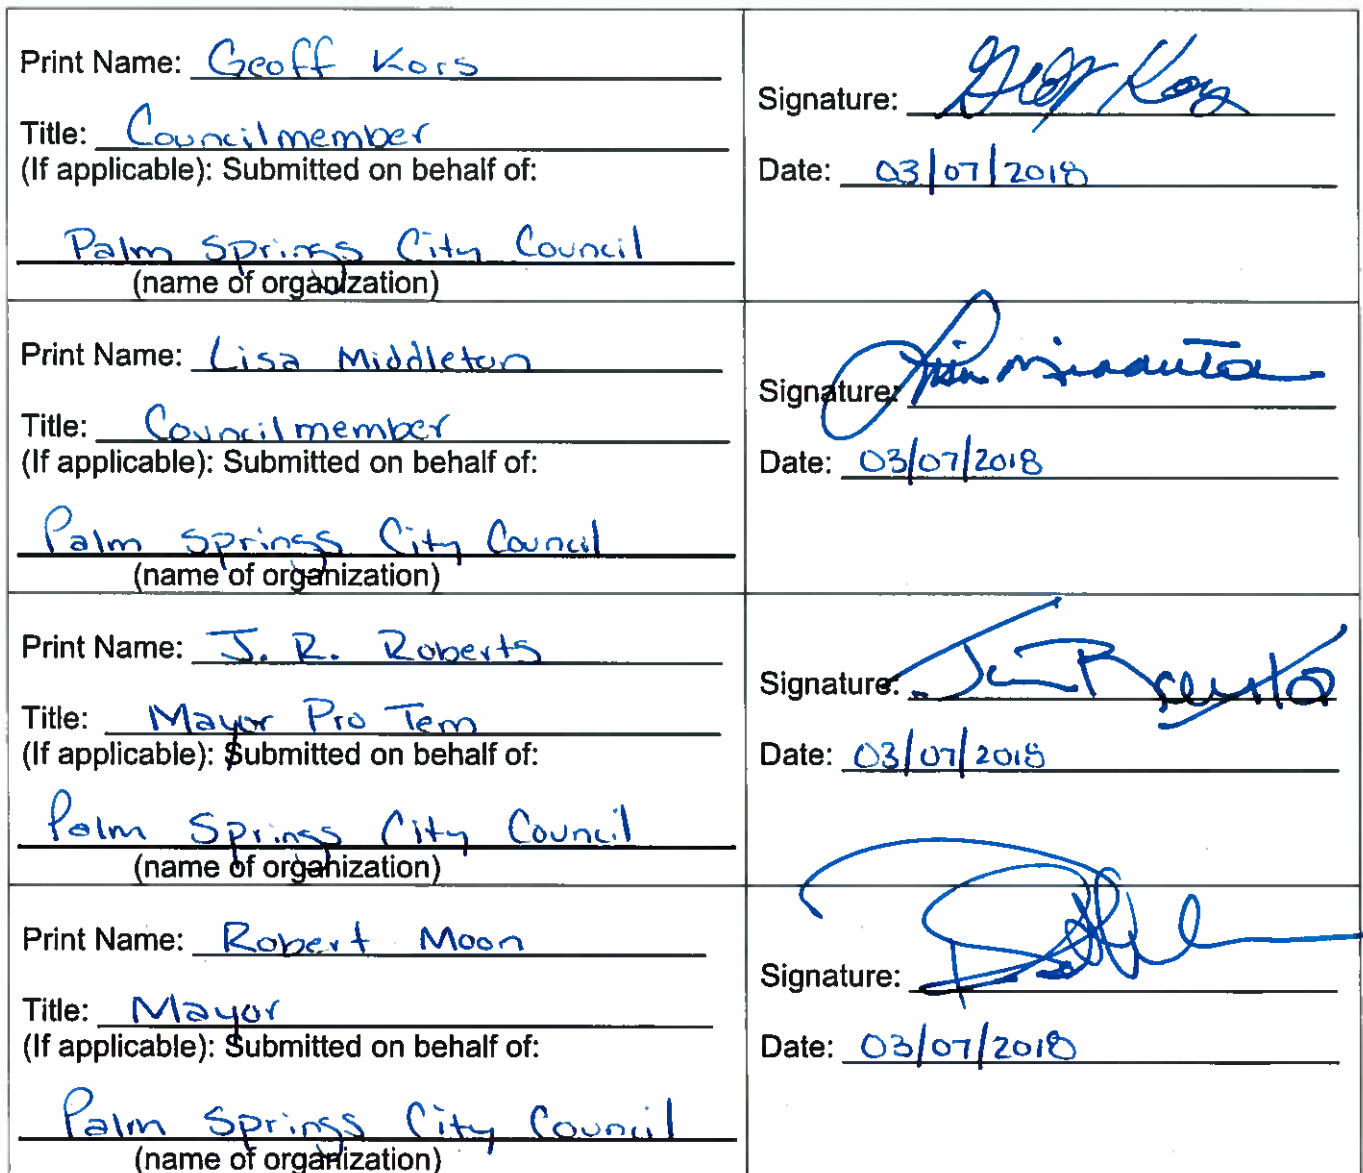 Print Name: Geoff Kors
Title: Councilmember
(If applicable): Submitted on behalf of:
Palm Springs City Council
(name of organization)
Signature: Geoff Kors
Date: 03/07/2018
Print Name: Lisa Middleton
Title: Councilmember
(If applicable): Submitted on behalf of:
Palm Springs City Council
(name of organization)
Signature: Lisa Middleton
Date: 03/07/2018
Print Name: J. R. Roberts
Title: Mayor Pro Tem
(If applicable): Submitted on behalf of:
Palm Springs City Council
(name of organization)
Signature:
Date: 03/07/2018
Print Name: Robert Moon
Title: Mayor
(If applicable): Submitted on behalf of:
Palm Springs City Council
(name of organization)
Signature:
Date: 03/07/2018